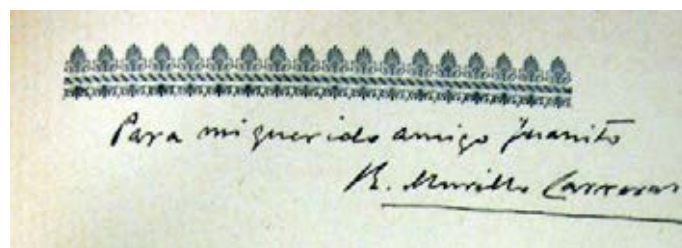 Para mi querido amigo Juanito
R. Murillo Carreras